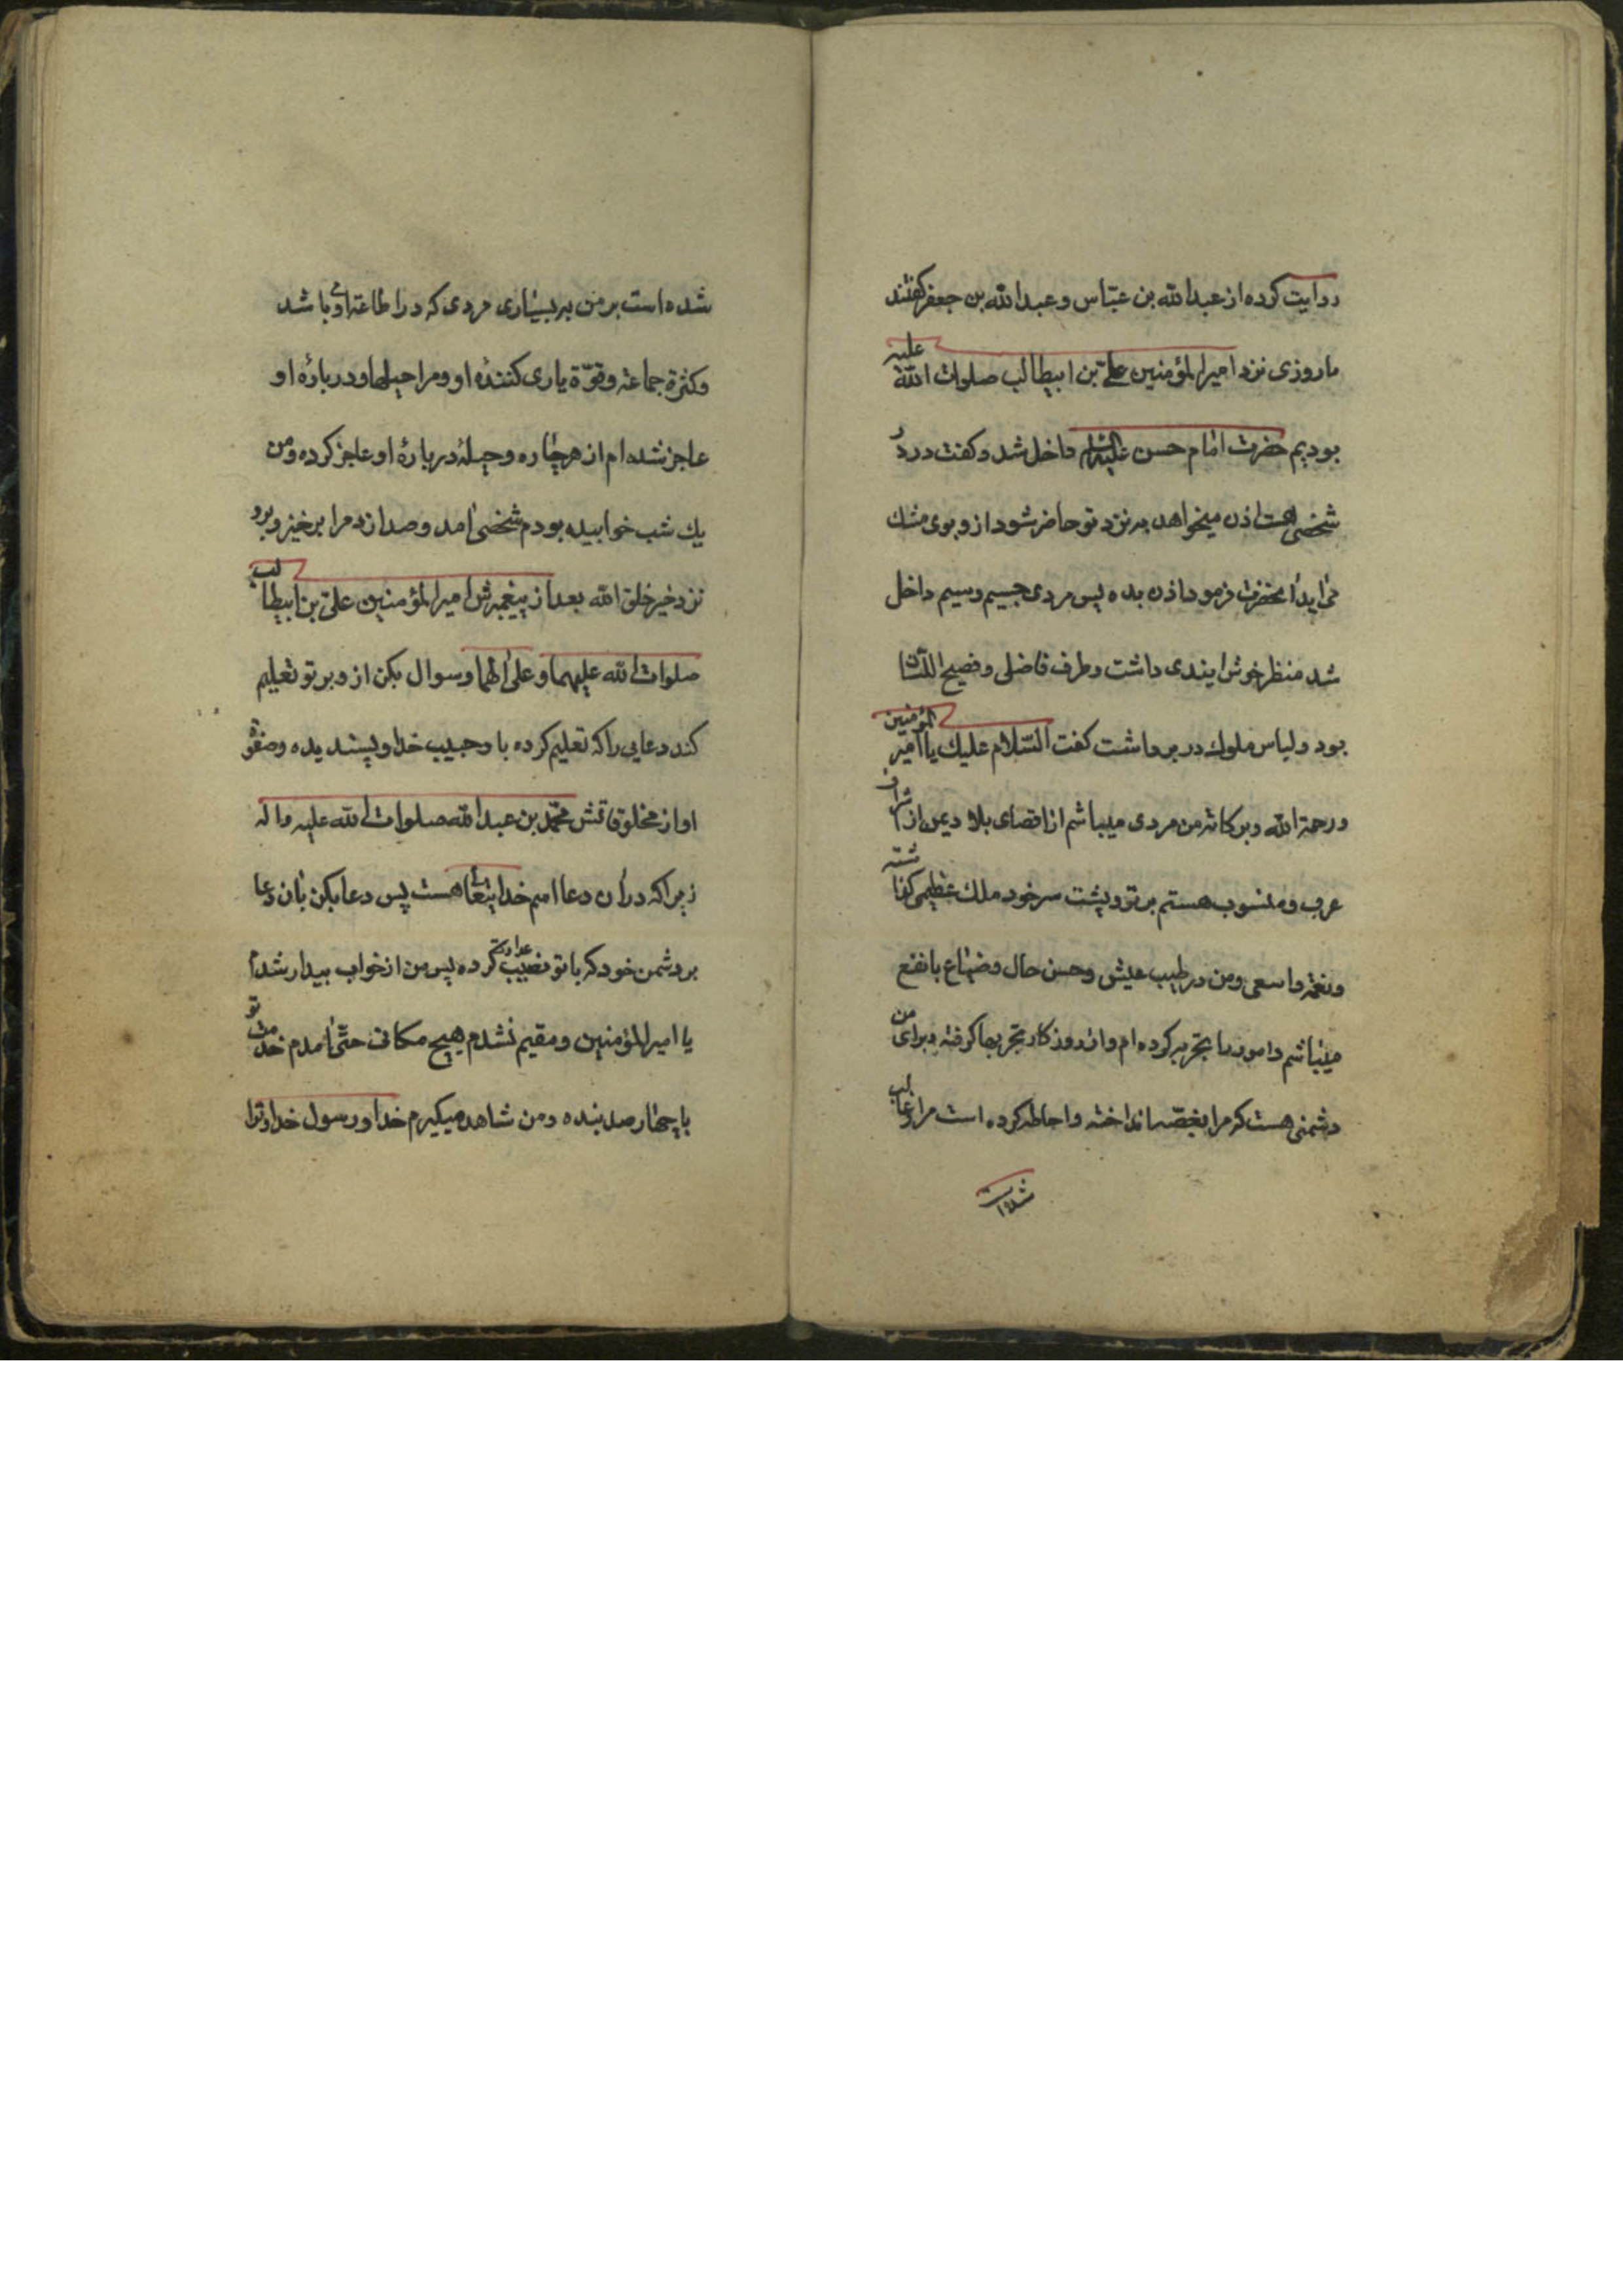 روایت کرده از عبدالله بن عباس و عبدالله بن جعفر کفتند
ما روزی نزد امیرالمؤمنین علی بن ابیطالب صلوات الله علیه
بودیم حضرت امام حسن علیه السلام داخل شد و کفت در در
شخصی هست اذن میخواهد به نزد تو حاضر شود از و بوی مشك
می آید آنحضرت فرمود اذن بده پس مردی جسیم وسیم داخل
شد منظر خوش آیندی داشت و طرف فاضلی و فصیح اللسان
بود و لباس ملوك در بر داشت کفت السلام علیك یا امیر المؤمنین
و رحمة الله و برکاته من مردی میباشم از اقصای بلاد یمن از اشراف
عرب و منسوب هستم بر تو و پشت سر خود ملك عظیمی کذاشته
و نعمة واسعی و من در طیب عیش و حسن حال و ضیاع با نفع
میباشم و امور را تجربه کرده ام و از روزکار تجربها کرفته و برای من
دشمنی هست که مرا بغصّه انداخته و احاطه کرده است مرا و غالب
شده است
شده است بر من به بسیاری مردی که در اطاعة او باشد
و کثرة جماعة و قوّة یاری کنندهٔ او و مرا حیلها و در بارهٔ او
عاجز شده ام از هر چاره و حیلهٔ در بارهٔ او عاجز کرده و من
یك شب خوابیده بودم شخصی آمد و صدا زد مرا برخیز و برو
نزد خیر خلق الله بعد از پیغمبرش امیرالمؤمنین علی بن ابیطالب
صلوات الله علیهما و علی آلهما و سوال بکن از و بر تو تعلیم
کند دعایی را که تعلیم کرده با و حبیب خدا و پسندیده و صفوة
او از مخلوقاتش محمد بن عبدالله صلوات الله علیه و اله
زیرا که در آن دعا اسم خدایتعالی هست پس دعا بکن بآن دعا
بر دشمن خود که با تو نصب عداوت کرده پس من از خواب بیدار شدم
یا امیرالمؤمنین و مقیم نشدم بهیچ مکانی حتی آمدم خدمت تو
با چهار صد بنده و من شاهد میکیرم خدا و رسول خدا و ترا